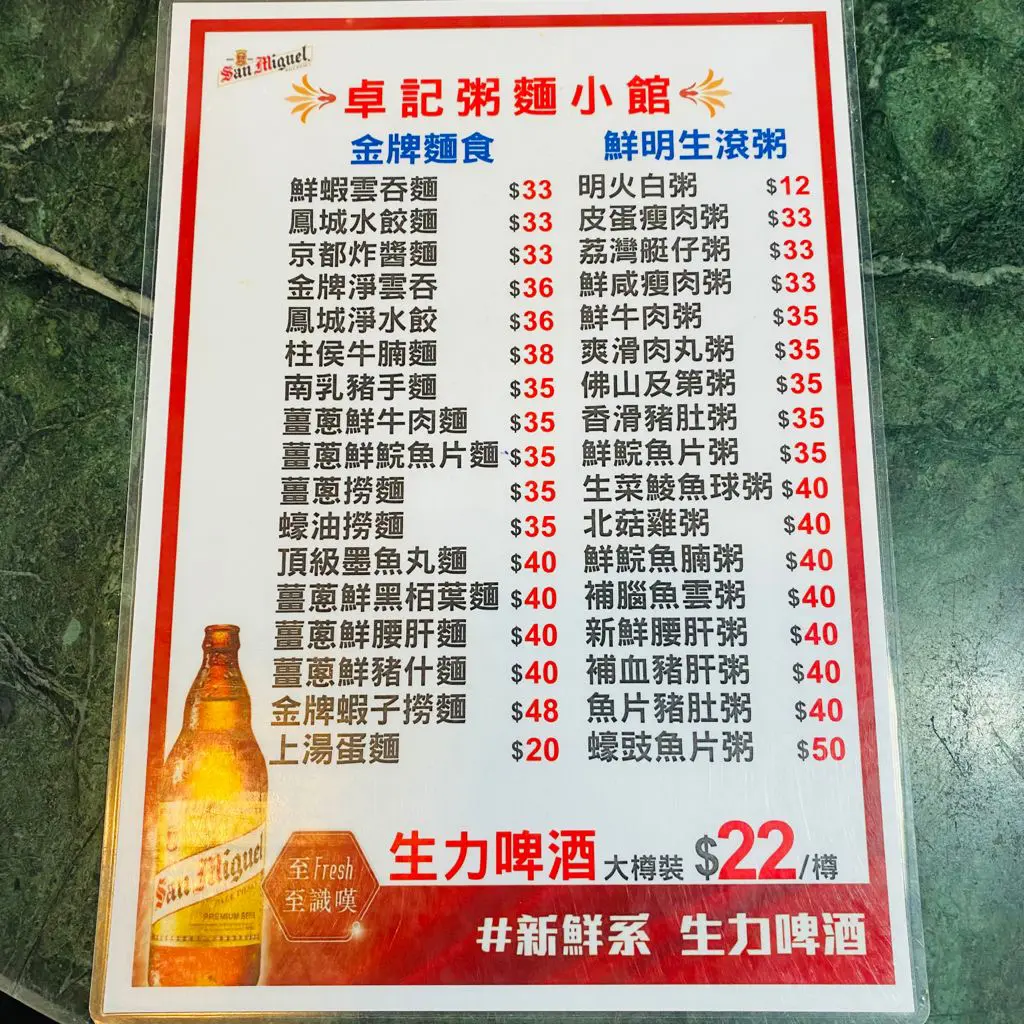 San Miguel
卓記粥麵小館
金牌麵食
鮮蝦雲吞麵 $33
鳳城水餃麵 $33
京都炸醬麵 $33
金牌淨雲吞 $36
鳳城淨水餃 $36
柱侯牛腩麵 $38
南乳豬手麵 $35
薑蔥鮮牛肉麵 $35
薑蔥鮮鯇魚片麵 $35
薑蔥撈麵 $35
蠔油撈麵 $35
頂級墨魚丸麵 $40
薑蔥鮮黑栢葉麵 $40
薑蔥鮮腰肝麵 $40
薑蔥鮮豬什麵 $40
金牌蝦子撈麵 $48
上湯蛋麵 $20
鮮明生滾粥
明火白粥 $12
皮蛋瘦肉粥 $33
荔灣艇仔粥 $33
鮮咸瘦肉粥 $33
鮮牛肉粥 $35
爽滑肉丸粥 $35
佛山及第粥 $35
香滑豬肚粥 $35
鮮鯇魚片粥 $35
生菜鯪魚球粥 $40
北菇雞粥 $40
鮮鯇魚腩粥 $40
補腦魚雲粥 $40
新鮮腰肝粥 $40
補血豬肝粥 $40
魚片豬肚粥 $40
蠔豉魚片粥 $50
生力啤酒 大樽裝 $22/樽
至Fresh
至識嘆
San Miguel
PREMIUM BEER
#新鮮系 生力啤酒